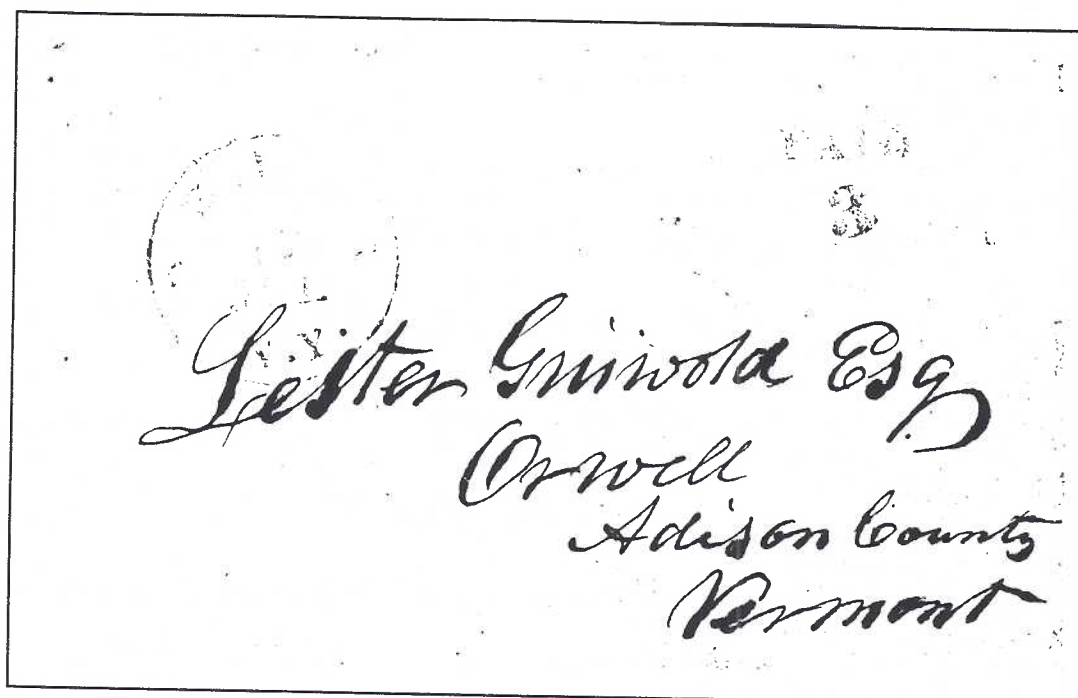 PAID
3
Lester Griswold Esq
Orwell
Adison County
Vermont